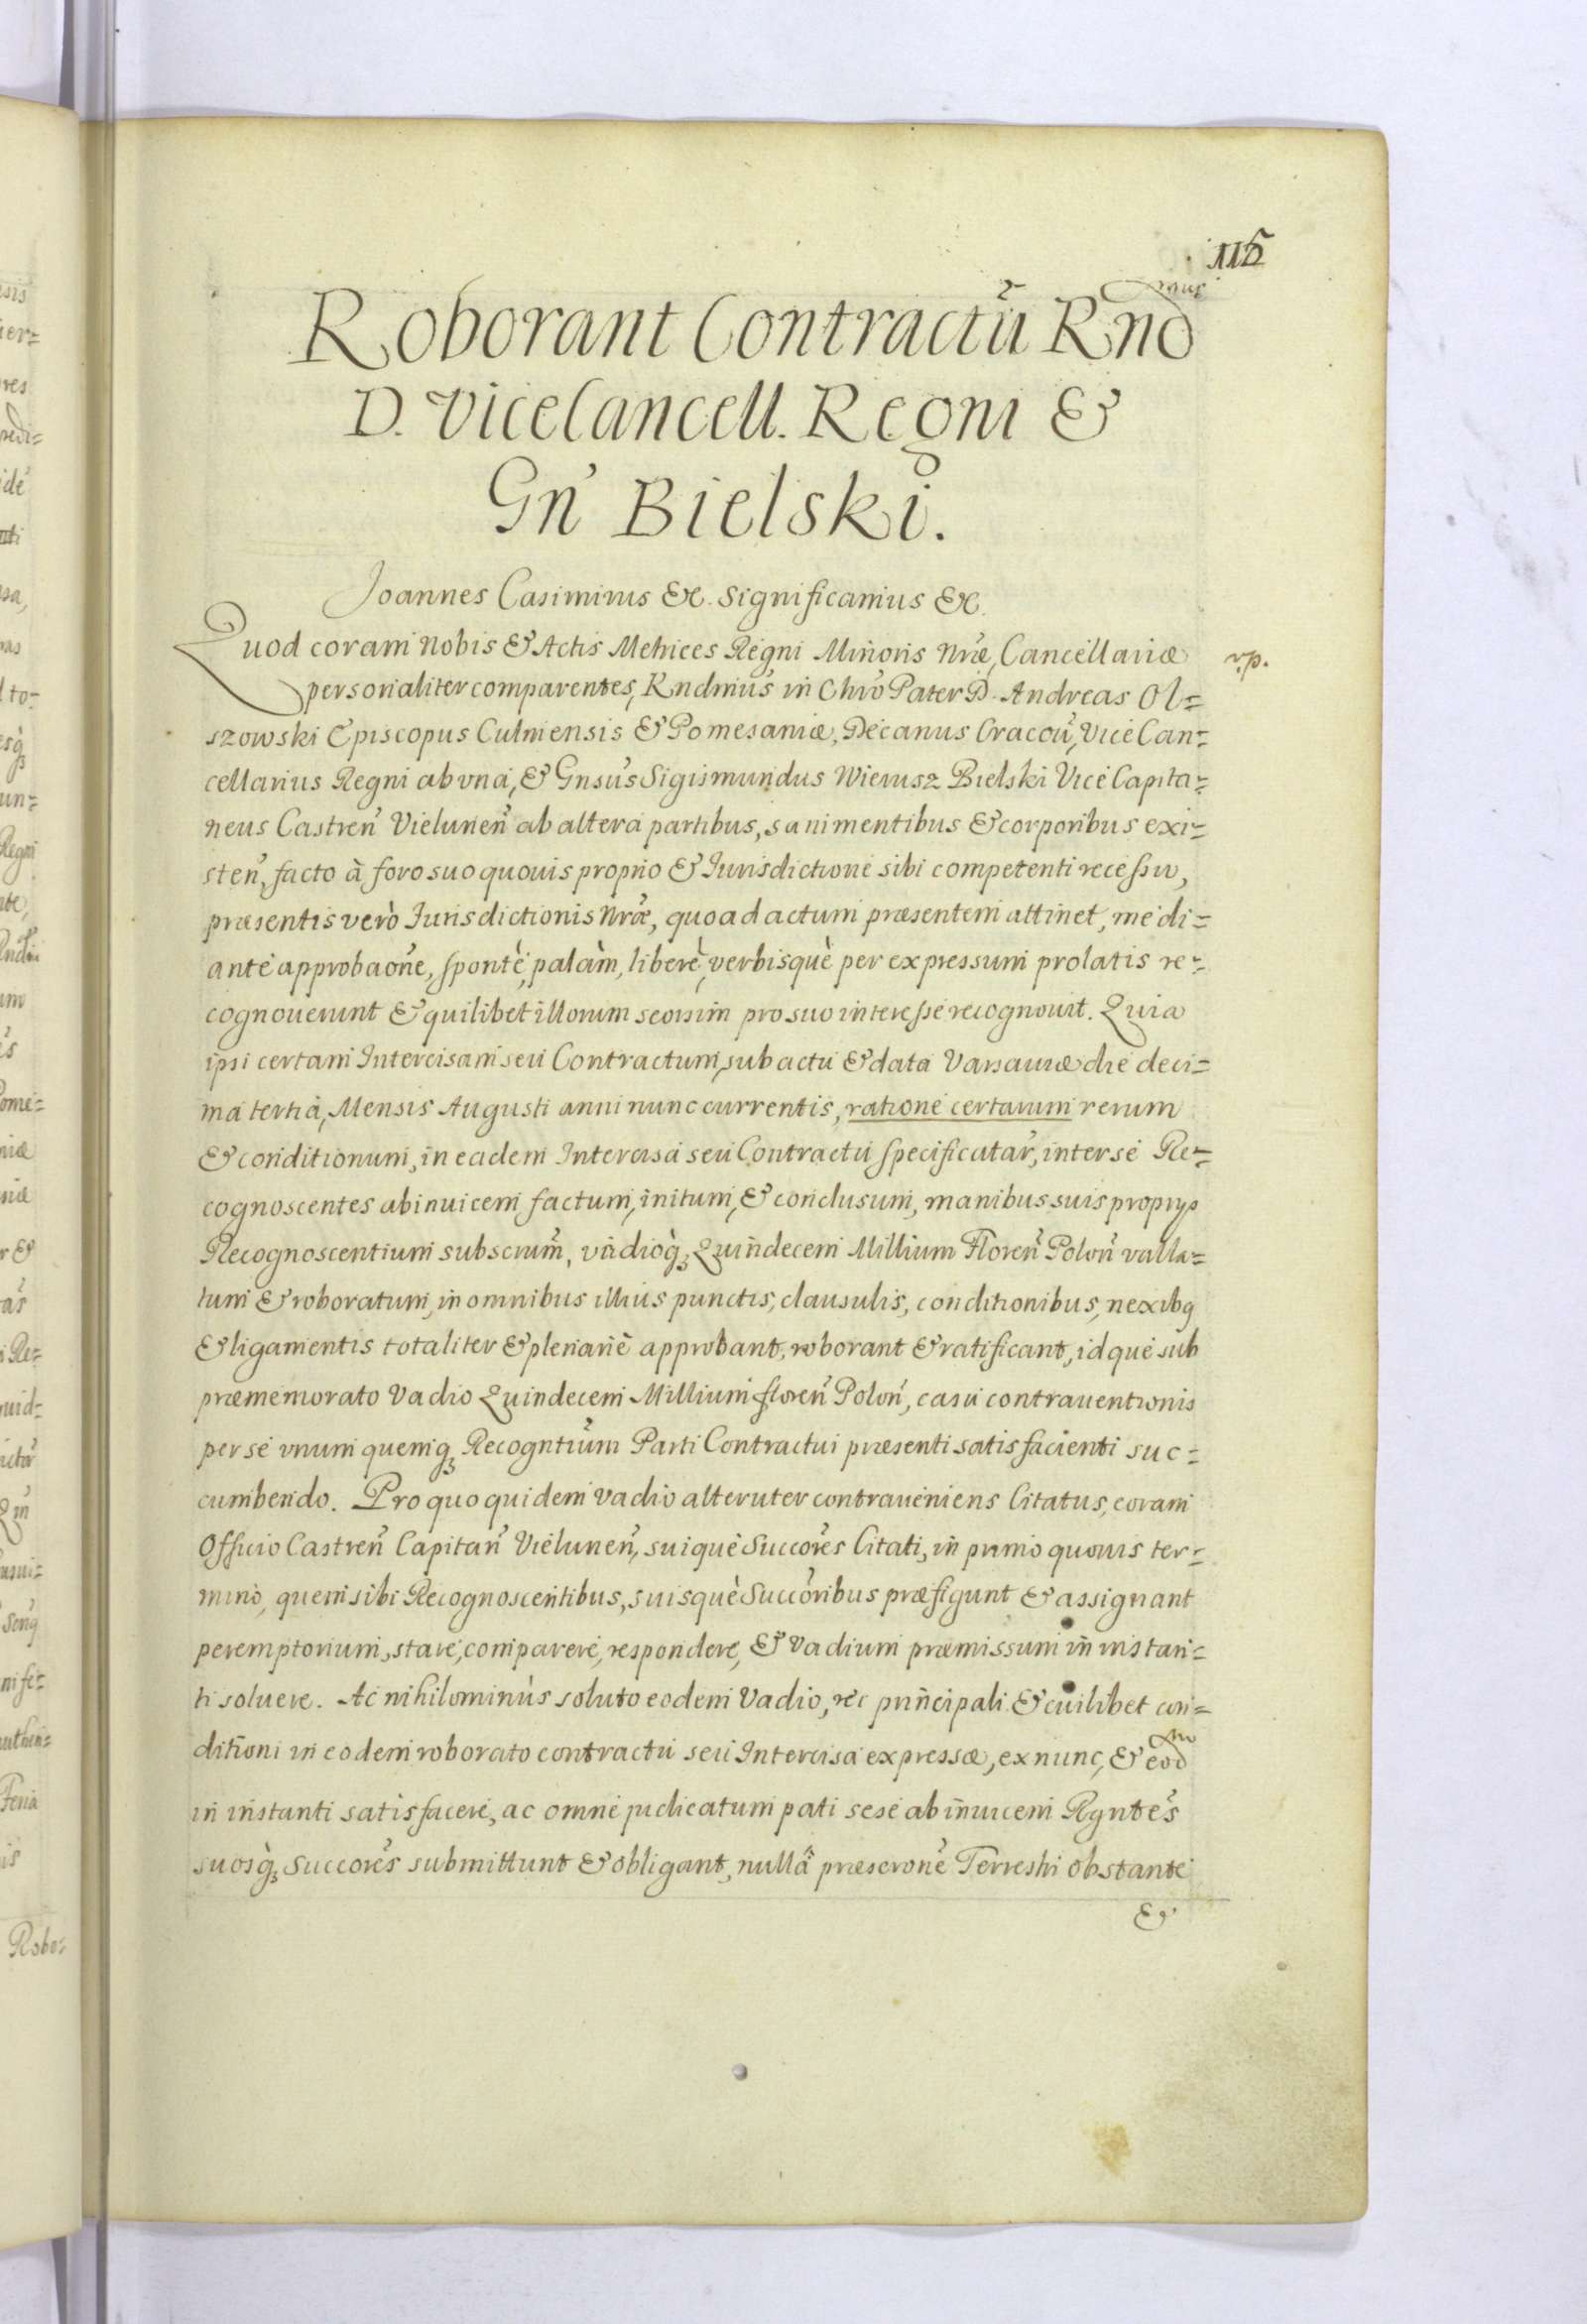 115
Roborant Contractũ Rnd mus
D. ViceCancell. Regni &
Gñ Bielski.
Joannes Casimirus &c. Significamus &c.
Quod coram Nobis & Actis Metrices Regni Minoris Nræ, Cancellariæ r.p.
personaliter comparentes, Rndmus in Chrõ Pater D. Andreas Ol=
szowski Episcopus Culmensis & Pomesaniæ, Decanus Cracoũ, ViceCan=
cellarius Regni ab vna, & Gnsus Sigismundus Wierusz Bielski ViceCapita=
neus Castreñ Vieluneñ ab altera partibus, sani mentibus & corporibus exi=
steñ, facto à foro suo quouis proprio & Iurisdictione sibi competenti recessu,
præsentis verò Iurisdictionis Nræ, quo ad actum præsentem attinet, medi=
ante approbaõne, spontè, palàm, liberè, verbisquè per expressum prolatis re=
cognouerunt & quilibet illorum seorsim pro suo interesse recognouit. Quia
ipsi certam Intercisam seu Contractum, sub actu & data Varsauiæ die deci=
ma tertia, Mensis Augusti anni nunc currentis, ratione certarum rerum
& conditionum, in eadem Intercisa seu Contractu specificatar̃, inter se Re=
cognoscentes abinuicem factum, initum, & conclusum, manibus suis proprijs
Recognoscentium subscrum̃, vadioq; Quindecem Millium Floreñ Poloñ valla=
tum & roboratum, in omnibus illius punctis, clausulis, conditionibus, nexibq
& ligamentis totaliter & plenariè approbant, roborant & ratificant, idque sub
præmemorato Vadio Quindecem Millium floreñ Poloñ, casu contrauentionis
per se vnum quemq; Recogntiũm Parti Contractui præsenti satisfacienti suc=
cumbendo. Pro quo quidem vadio alteruter contraueniens Citatus, coram
Officio Castreñ Capitañ Vieluneñ, suiquè Succor̃es Citati, in primo quouis ter=
mino, quem sibi Recognoscentibus, suisquè Succor̃ibus præfigunt & assignant
peremptorium, stare, comparere, respondere, & Vadium præmissum in instan=
ti soluere. Ac nihilominùs soluto eodem Vadio, rei principali & cuilibet con=
ditioni in eodem roborato contractu seu Intercisa expressæ, ex nunc, & eod m
in instanti satisfacere, ac omne judicatum pati sese ab inuicem Rgntes̃
suosq; Succor̃es submittunt & obligant, nullâ præscr̃one Terrestri obstante
&.